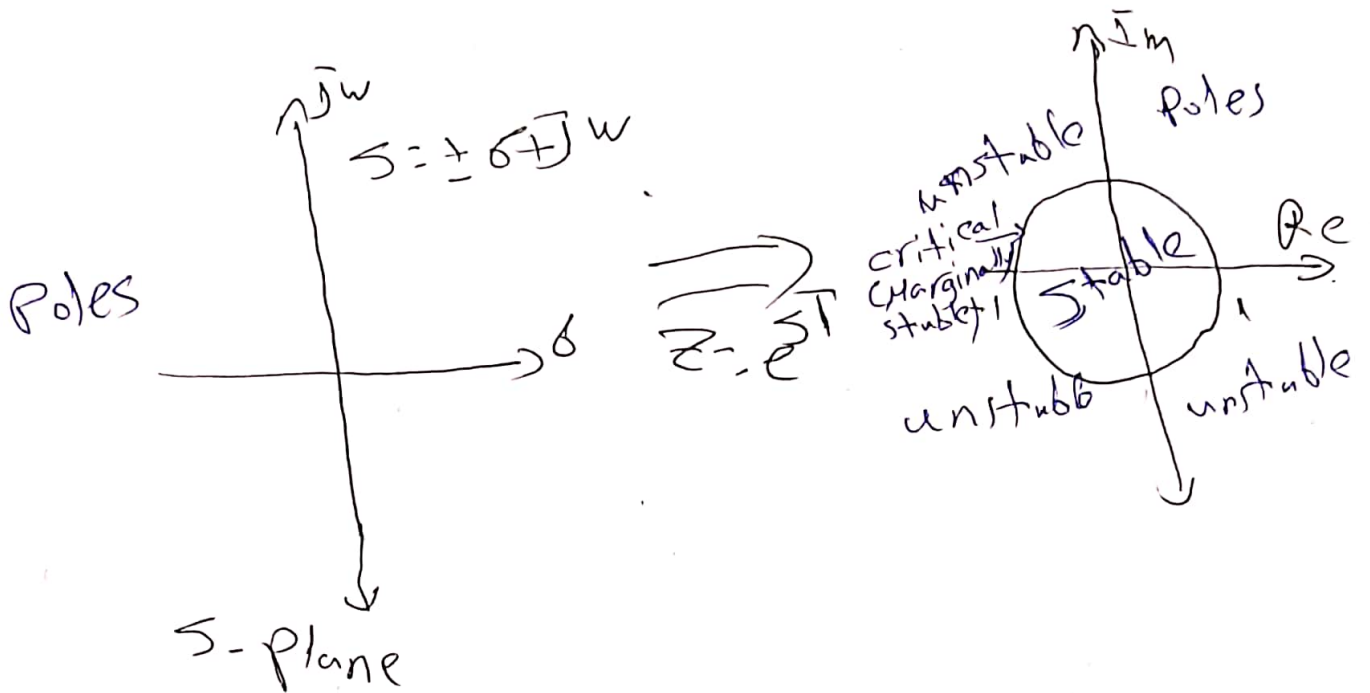 jw
S = ± σ + jw
Poles
σ
S-plane
Z = e^ST
Im
Poles
unstable
Re
critical
(Marginally
stable)
-1
Stable
1
unstable
unstable